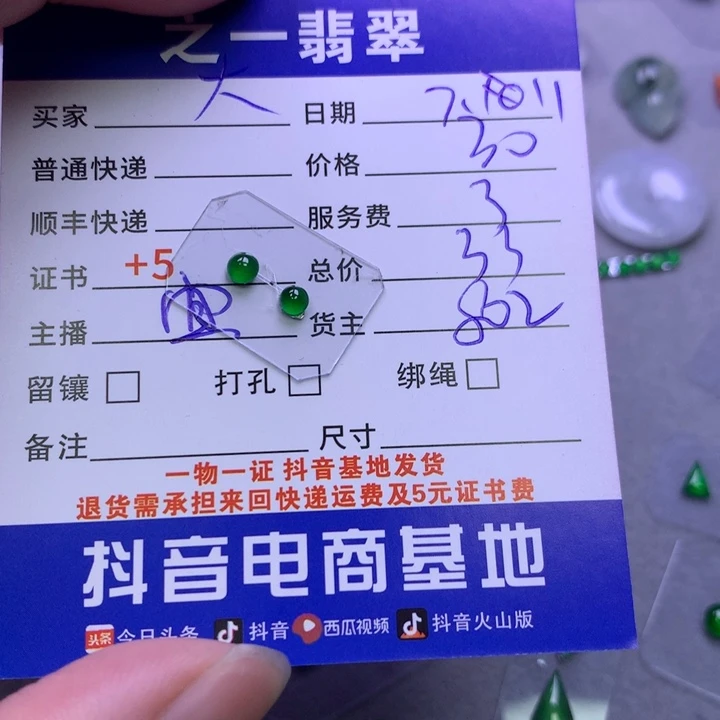 之一翡翠
买家 大 日期
普通快递 价格 30
顺丰快递 服务费 3
证书 +5 总价 33
主播 货主 802
留镶 打孔 绑绳
备注 尺寸
一物一证 抖音基地发货
退货需承担来回快递运费及5元证书费
抖音电商基地
头条 今日头条 抖音 西瓜视频 抖音火山版